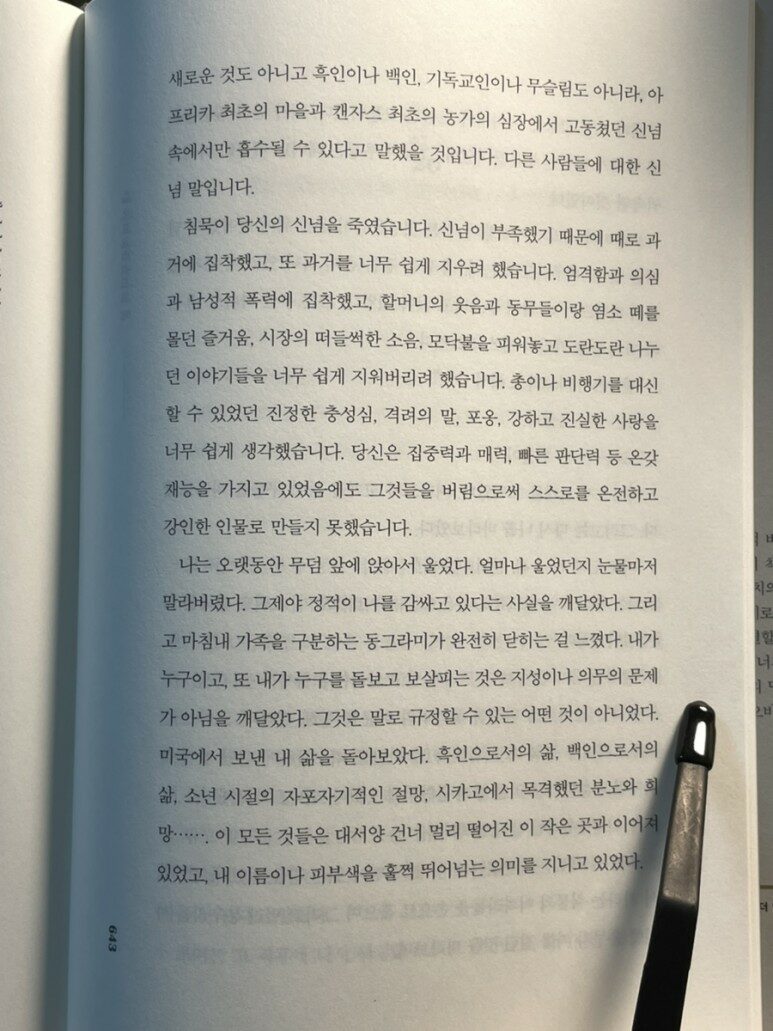 새로운 것도 아니고 흑인이나 백인, 기독교인이나 무슬림도 아니라, 아
프리카 최초의 마을과 캔자스 최초의 농가의 심장에서 고동쳤던 신념
속에서만 흡수될 수 있다고 말했을 것입니다. 다른 사람들에 대한 신
념 말입니다.
침묵이 당신의 신념을 죽였습니다. 신념이 부족했기 때문에 때로 과
거에 집착했고, 또 과거를 너무 쉽게 지우려 했습니다. 엄격함과 의심
과 남성적 폭력에 집착했고, 할머니의 웃음과 동무들이랑 염소 떼를
몰던 즐거움, 시장의 떠들썩한 소음, 모닥불을 피워놓고 도란도란 나누
던 이야기들을 너무 쉽게 지워버리려 했습니다. 총이나 비행기를 대신
할 수 있었던 진정한 충성심, 격려의 말, 포옹, 강하고 진실한 사랑을
너무 쉽게 생각했습니다. 당신은 집중력과 매력, 빠른 판단력 등 온갖
재능을 가지고 있었음에도 그것들을 버림으로써 스스로를 온전하고
강인한 인물로 만들지 못했습니다.
나는 오랫동안 무덤 앞에 앉아서 울었다. 얼마나 울었던지 눈물마저
말라버렸다. 그제야 정적이 나를 감싸고 있다는 사실을 깨달았다. 그리
고 마침내 가족을 구분하는 동그라미가 완전히 닫히는 걸 느꼈다. 내가
누구이고, 또 내가 누구를 돌보고 보살피는 것은 지성이나 의무의 문제
가 아님을 깨달았다. 그것은 말로 규정할 수 있는 어떤 것이 아니었다.
미국에서 보낸 내 삶을 돌아보았다. 흑인으로서의 삶, 백인으로서의
삶, 소년 시절의 자포자기적인 절망, 시카고에서 목격했던 분노와 희
망……. 이 모든 것들은 대서양 건너 멀리 떨어진 이 작은 곳과 이어져
있었고, 내 이름이나 피부색을 훌쩍 뛰어넘는 의미를 지니고 있었다.
643